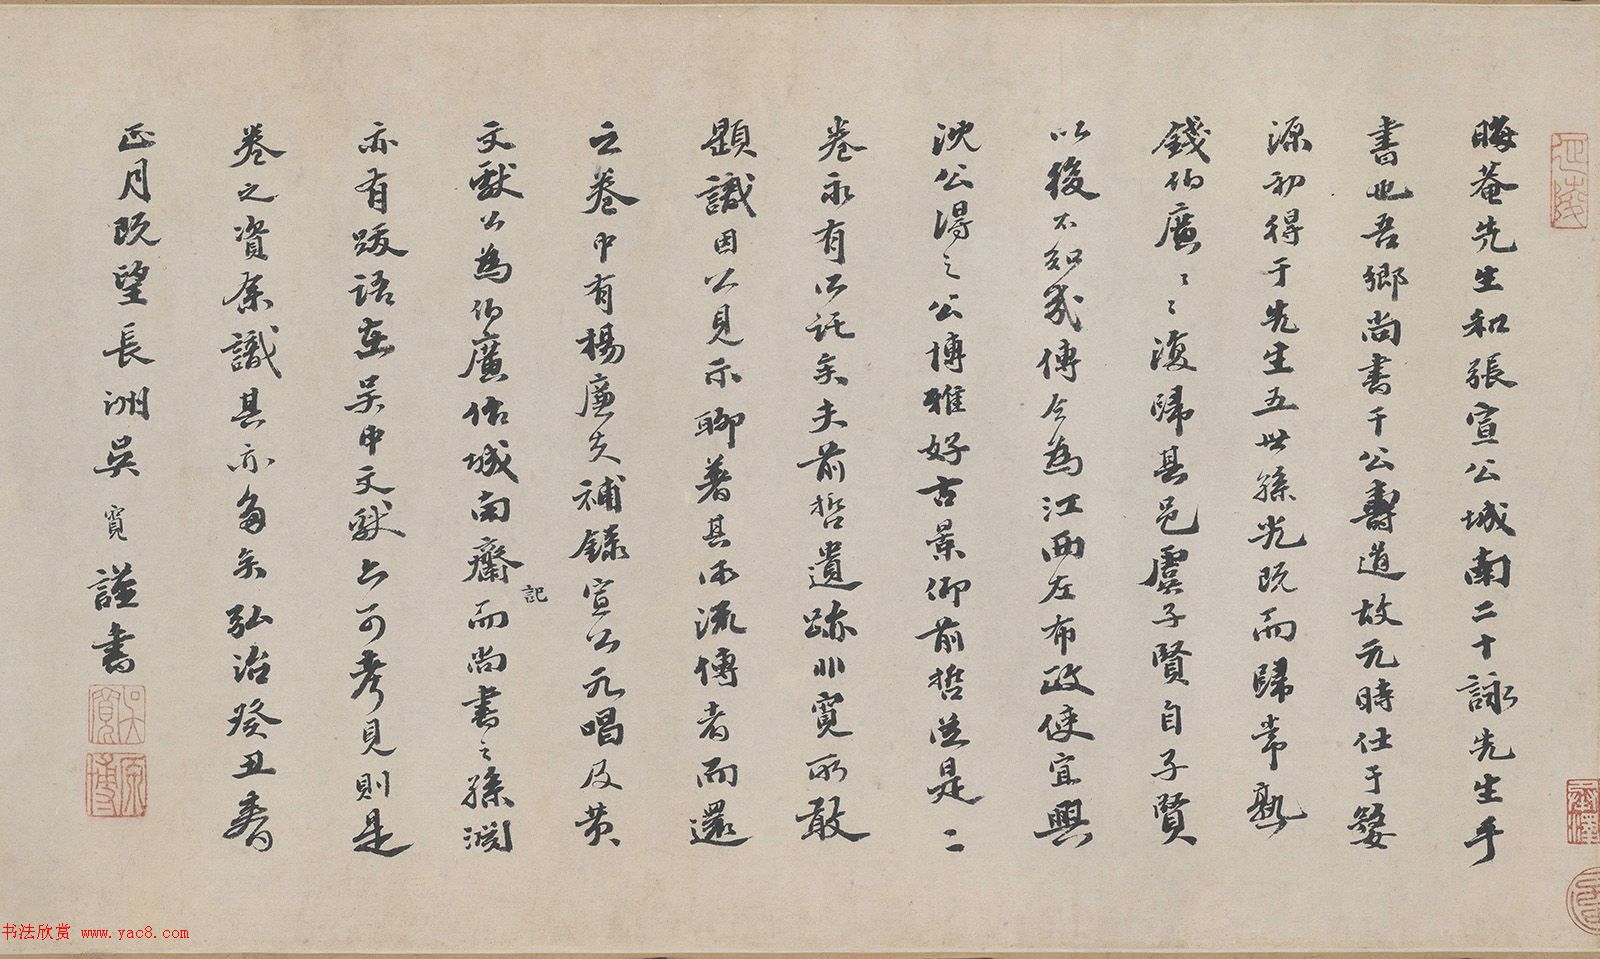 晦菴先生和張宣公城南二十詠先生手
書也吾鄉尚書干公壽道故元時仕于婺
源初得于先生五世孫光既而歸常熟
錢伯廣〻〻復歸其邑虞子賢自子賢
以後不知幾傳今為江西左布政使宜興
沈公得之公博雅好古景仰前哲於是二
卷永有所託矣夫前哲遺跡非寬所敢
題識因以見示聊著其源流傳者而還
之卷中有楊廉夫補錄宣公元唱及黄
文獻公為伯廣作城南齋記而尚書之孫淵
亦有跋語在吳中文獻亦可考見則是
卷之資余識其亦多矣弘治癸丑春
正月既望長洲吳寬謹書
吳寬
原博
书法欣赏 www.yac8.com